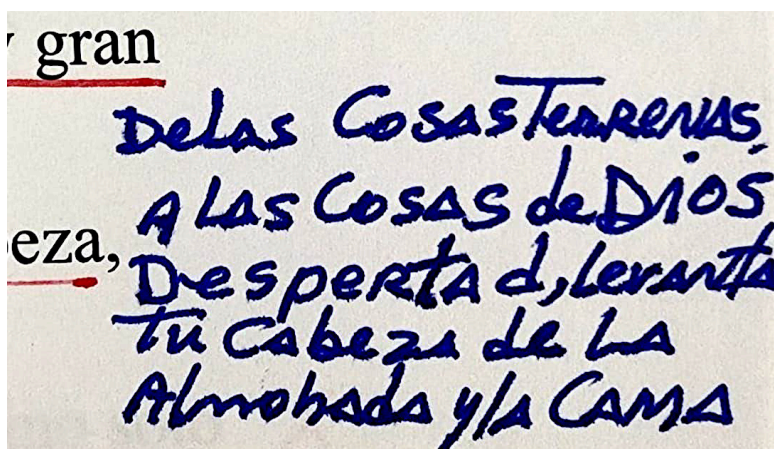 gran
De las Cosas Terrenas
A las Cosas de Dios
eza,
Despertad, levanta
Tu Cabeza de La
Almohada y la Cama